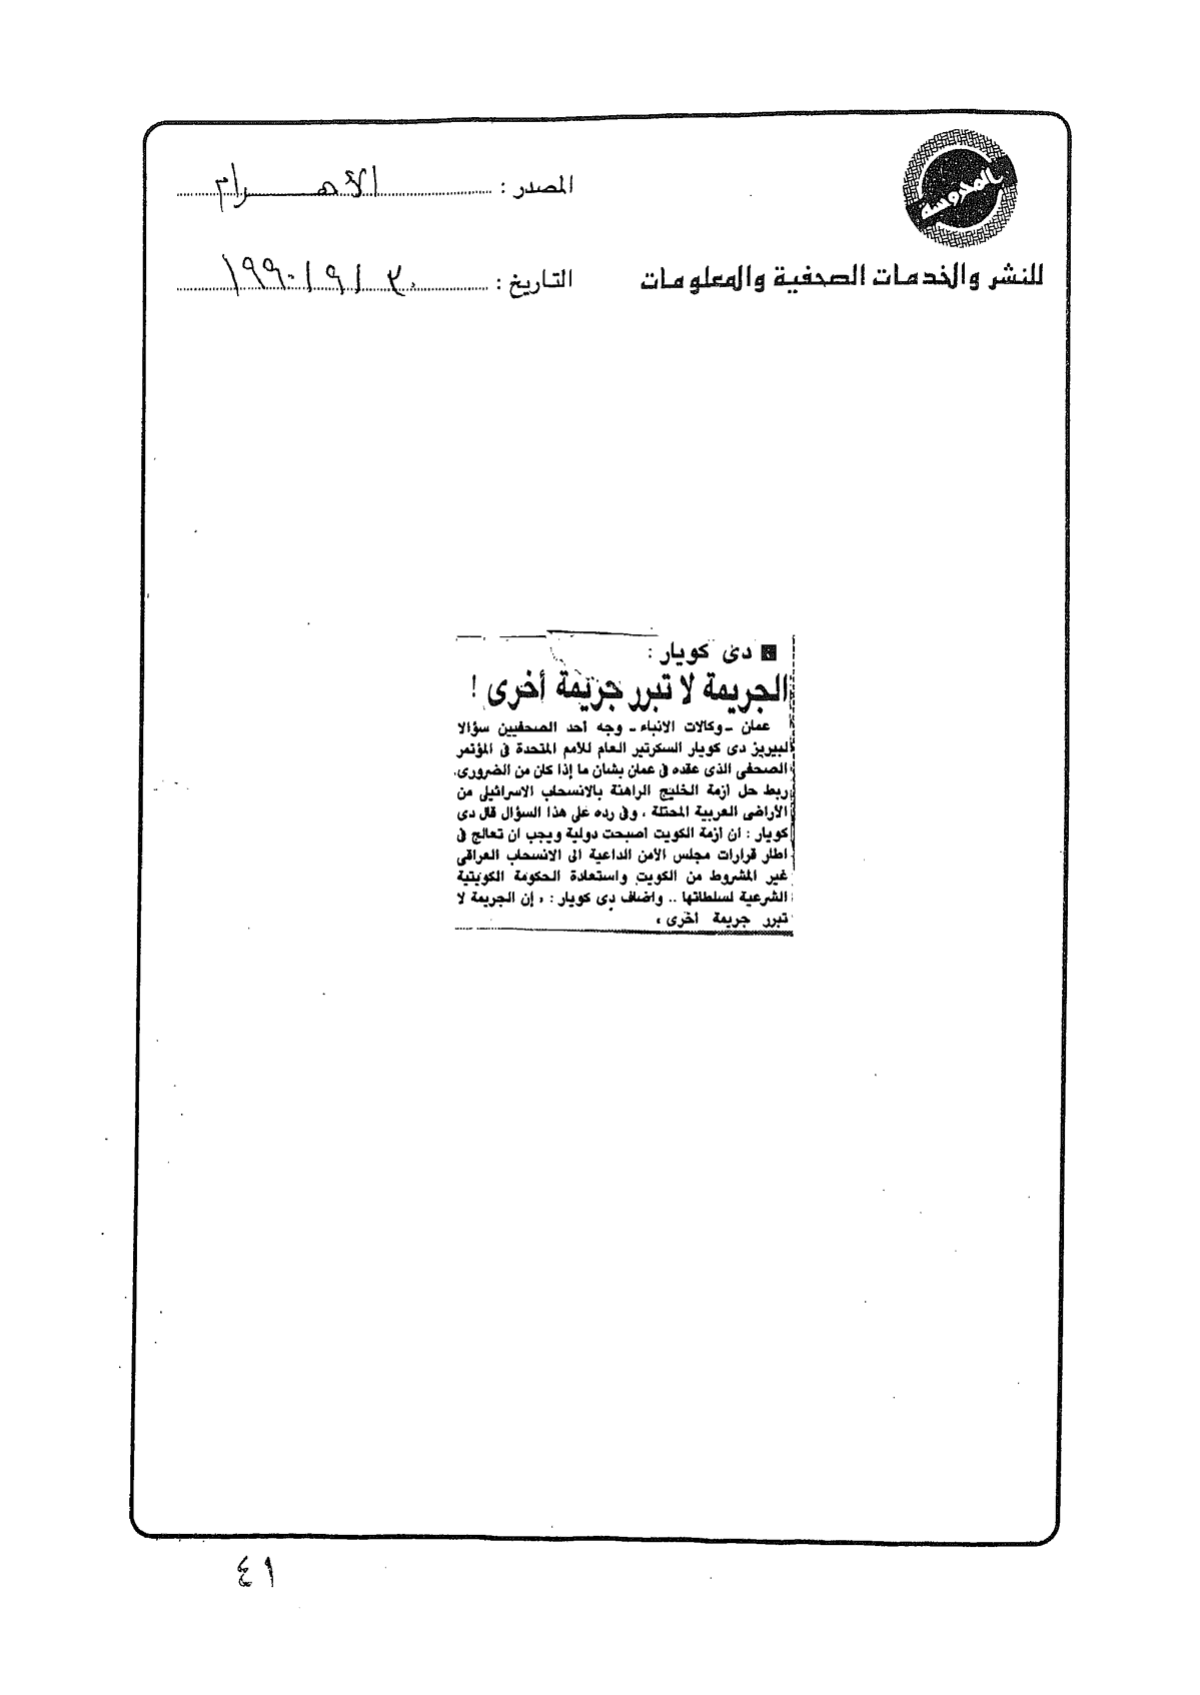 المحروسة
للنشر والخدمات الصحفية والمعلومات
المصدر : الأهرام
التاريخ : ٣٠ / ٩ / ١٩٩٠
■ دى كويار :
الجريمة لا تبرر جريمة أخرى !
عمان - وكالات الانباء - وجه احد الصحفيين سؤالا
لبيريز دى كويار السكرتير العام للأمم المتحدة فى المؤتمر
الصحفى الذى عقده فى عمان بشان ما إذا كان من الضرورى
ربط حل ازمة الخليج الراهنة بالانسحاب الاسرائيلى من
الأراضى العربية المحتلة ، وفى رده على هذا السؤال قال دى
كويار : ان ازمة الكويت اصبحت دولية ويجب ان تعالج فى
اطار قرارات مجلس الأمن الداعية الى الانسحاب العراقى
غير المشروط من الكويت واستعادة الحكومة الكويتية
الشرعية لسلطاتها .. واضاف دى كويار : « إن الجريمة لا
تبرر جريمة اخرى »
٤١